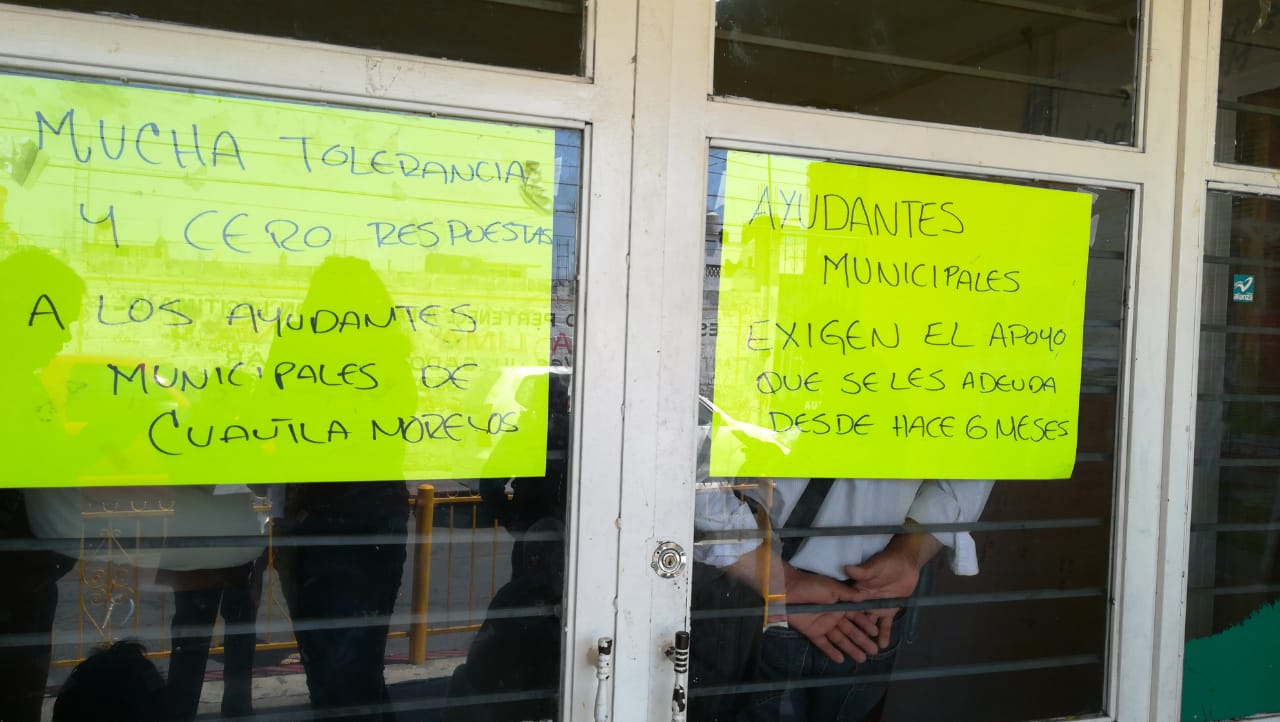 MUCHA TOLERANCIA
Y CERO RESPUESTAS
A LOS AYUDANTES
MUNICIPALES DE
CUAUTLA MORELOS
AYUDANTES
MUNICIPALES
EXIGEN EL APOYO
QUE SE LES ADEUDA
DESDE HACE 6 MESES
alianza